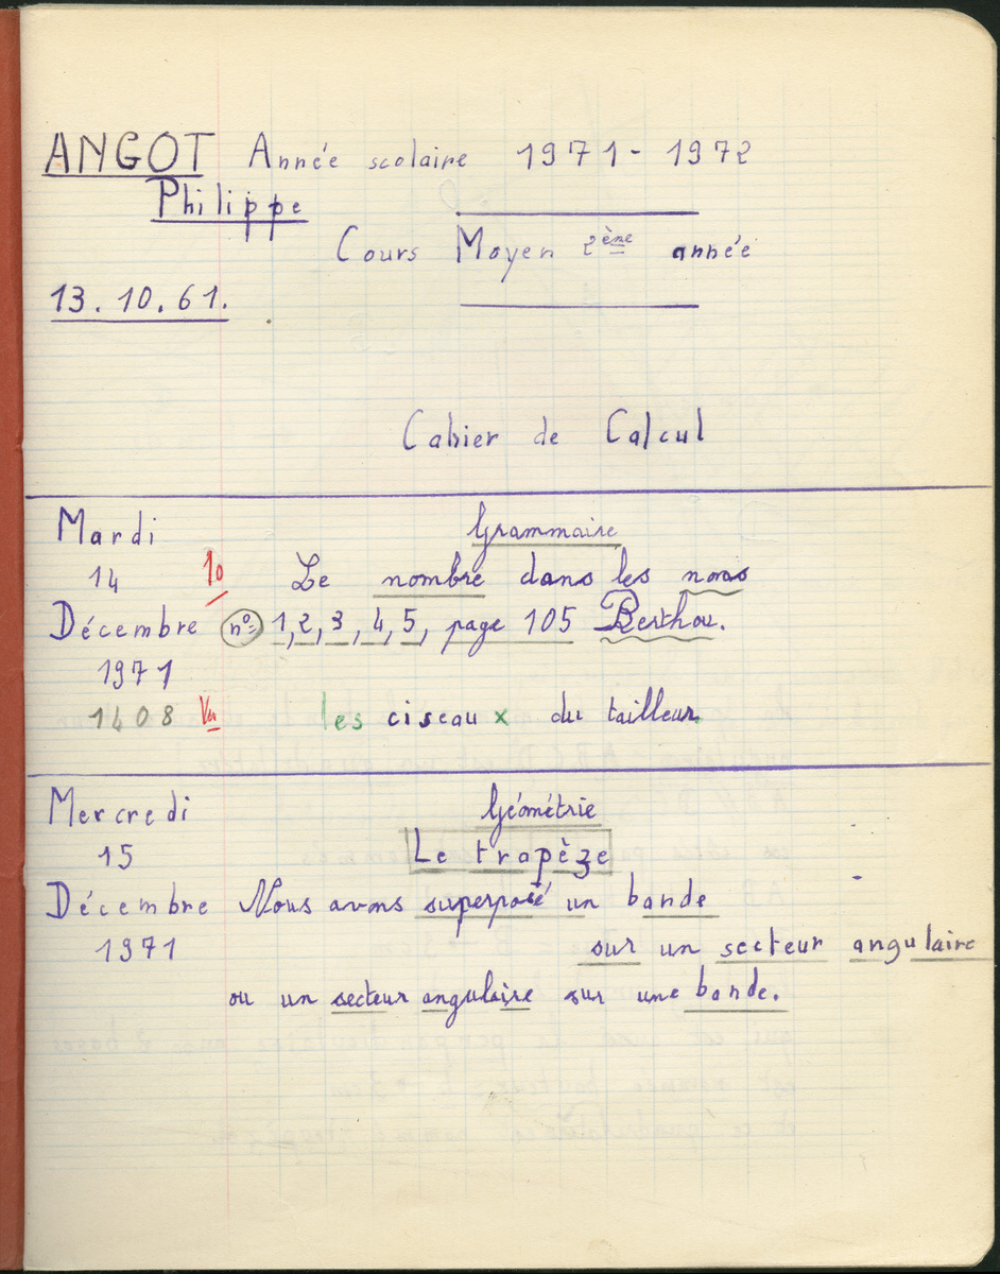 ANGOT Année scolaire 1971 - 1972
Philippe
Cours Moyen 2ème année
13.10.61.
Cahier de Calcul
Mardi Grammaire
14 10 Le nombre dans les noms
Décembre nos 1, 2, 3, 4, 5, page 105 Berthou.
1971
1408 Vu les ciseaux du tailleur
Mercredi Géométrie
15 Le trapèze
Décembre Nous avons superposé un bande
1971 sur un secteur angulaire
ou un secteur angulaire sur une bande.